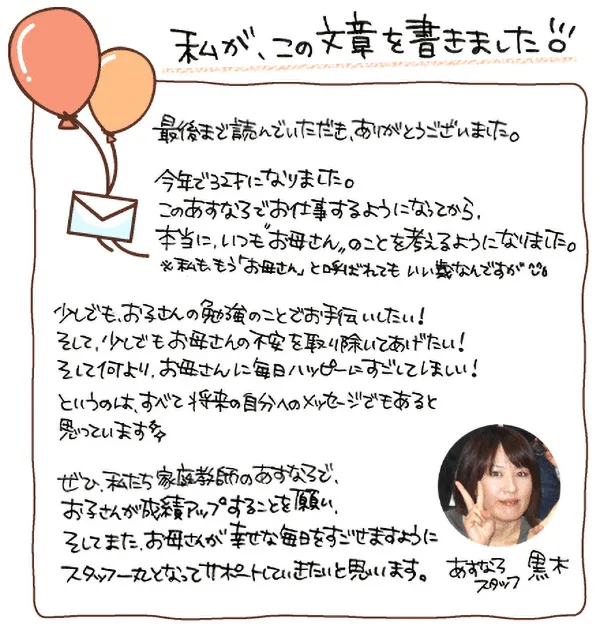 私が、この文章を書きました
最後まで読んでいただき、ありがとうございました。
今年で32才になりました。
このあすなろでお仕事するようになってから、
本当に、いつも"お母さん"のことを考えるようになりました。
※私も、もう「お母さん」と呼ばれてもいい歳なんですが
少しでも、お子さんの勉強のことでお手伝いしたい!
そして、少しでもお母さんの不安を取り除いてあげたい!
そして何より、お母さんに毎日ハッピーにすごしてほしい!
というのは、すべて将来の自分へのメッセージでもあると
思っています
ぜひ、私たち家庭教師のあすなろで、
お子さんが成績アップすることを願い、
そしてまた、お母さんが幸せな毎日をすごせますように
スタッフ一丸となってサポートしていきたいと思います。
あすなろ
スタッフ 黒木